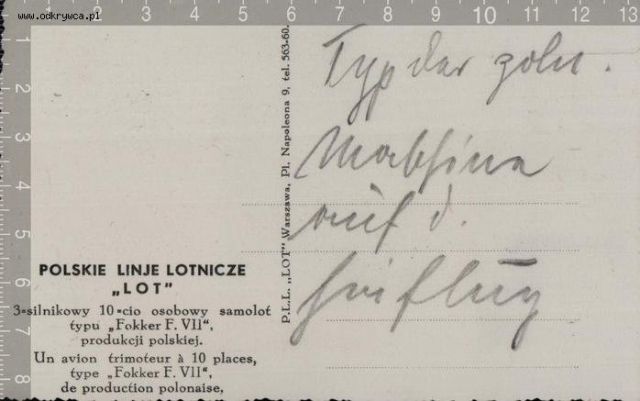 www.odkrywca.pl
1 2 3 4 5 6 7 8 9 10 11 12 13
1
2
3
4
5
6
7
8
POLSKIE LINJE LOTNICZE
„LOT”
3-silnikowy 10-cio osobowy samolot
typu „Fokker F. VII”,
produkcji polskiej.
Un avion trimoteur à 10 places,
type „Fokker F. VII”,
de production polonaise,
P.L.L. „LOT” Warszawa, Pl. Napoleona 9, tel. 563-60.
Typ der poln.
Maschine
auf d.
Hinflug